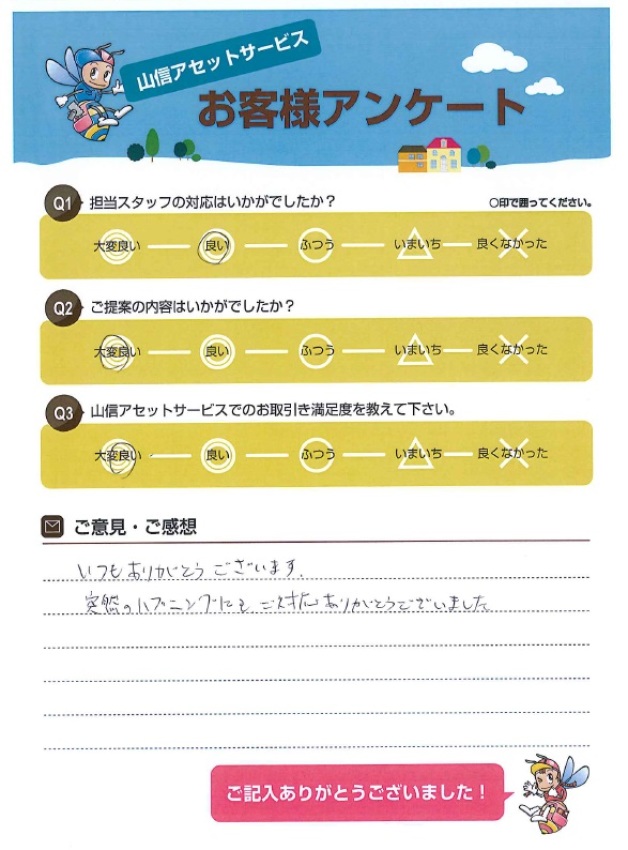 山信アセットサービス
お客様アンケート
Q1 担当スタッフの対応はいかがでしたか？ ○印で囲ってください。
大変良い 良い ふつう いまいち 良くなかった
Q2 ご提案の内容はいかがでしたか？
大変良い 良い ふつう いまいち 良くなかった
Q3 山信アセットサービスでのお取引き満足度を教えて下さい。
大変良い 良い ふつう いまいち 良くなかった
ご意見・ご感想
いつもありがとうございます。
突然のハプニングにもご対応ありがとうございました
ご記入ありがとうございました！